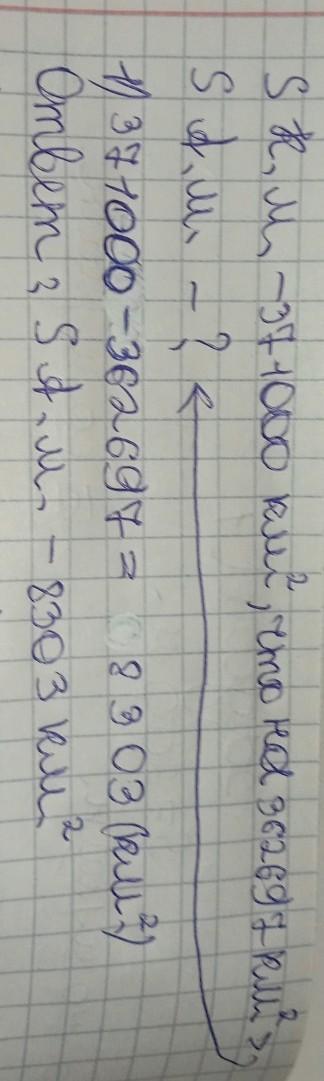 S К.м. – 371000 км², что на 362697 км² >,
S А.м. – ?
1) 371000 – 362697 = 8303 (км²)
Ответ: S А.м. – 8303 км²